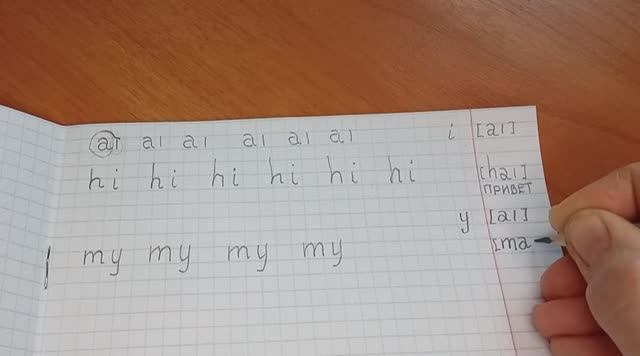 aı aı aı aı aı aı i [aı]
hi hi hi hi hi hi [haı]
ПРИВЕТ
y [aı]
my my my my [ma